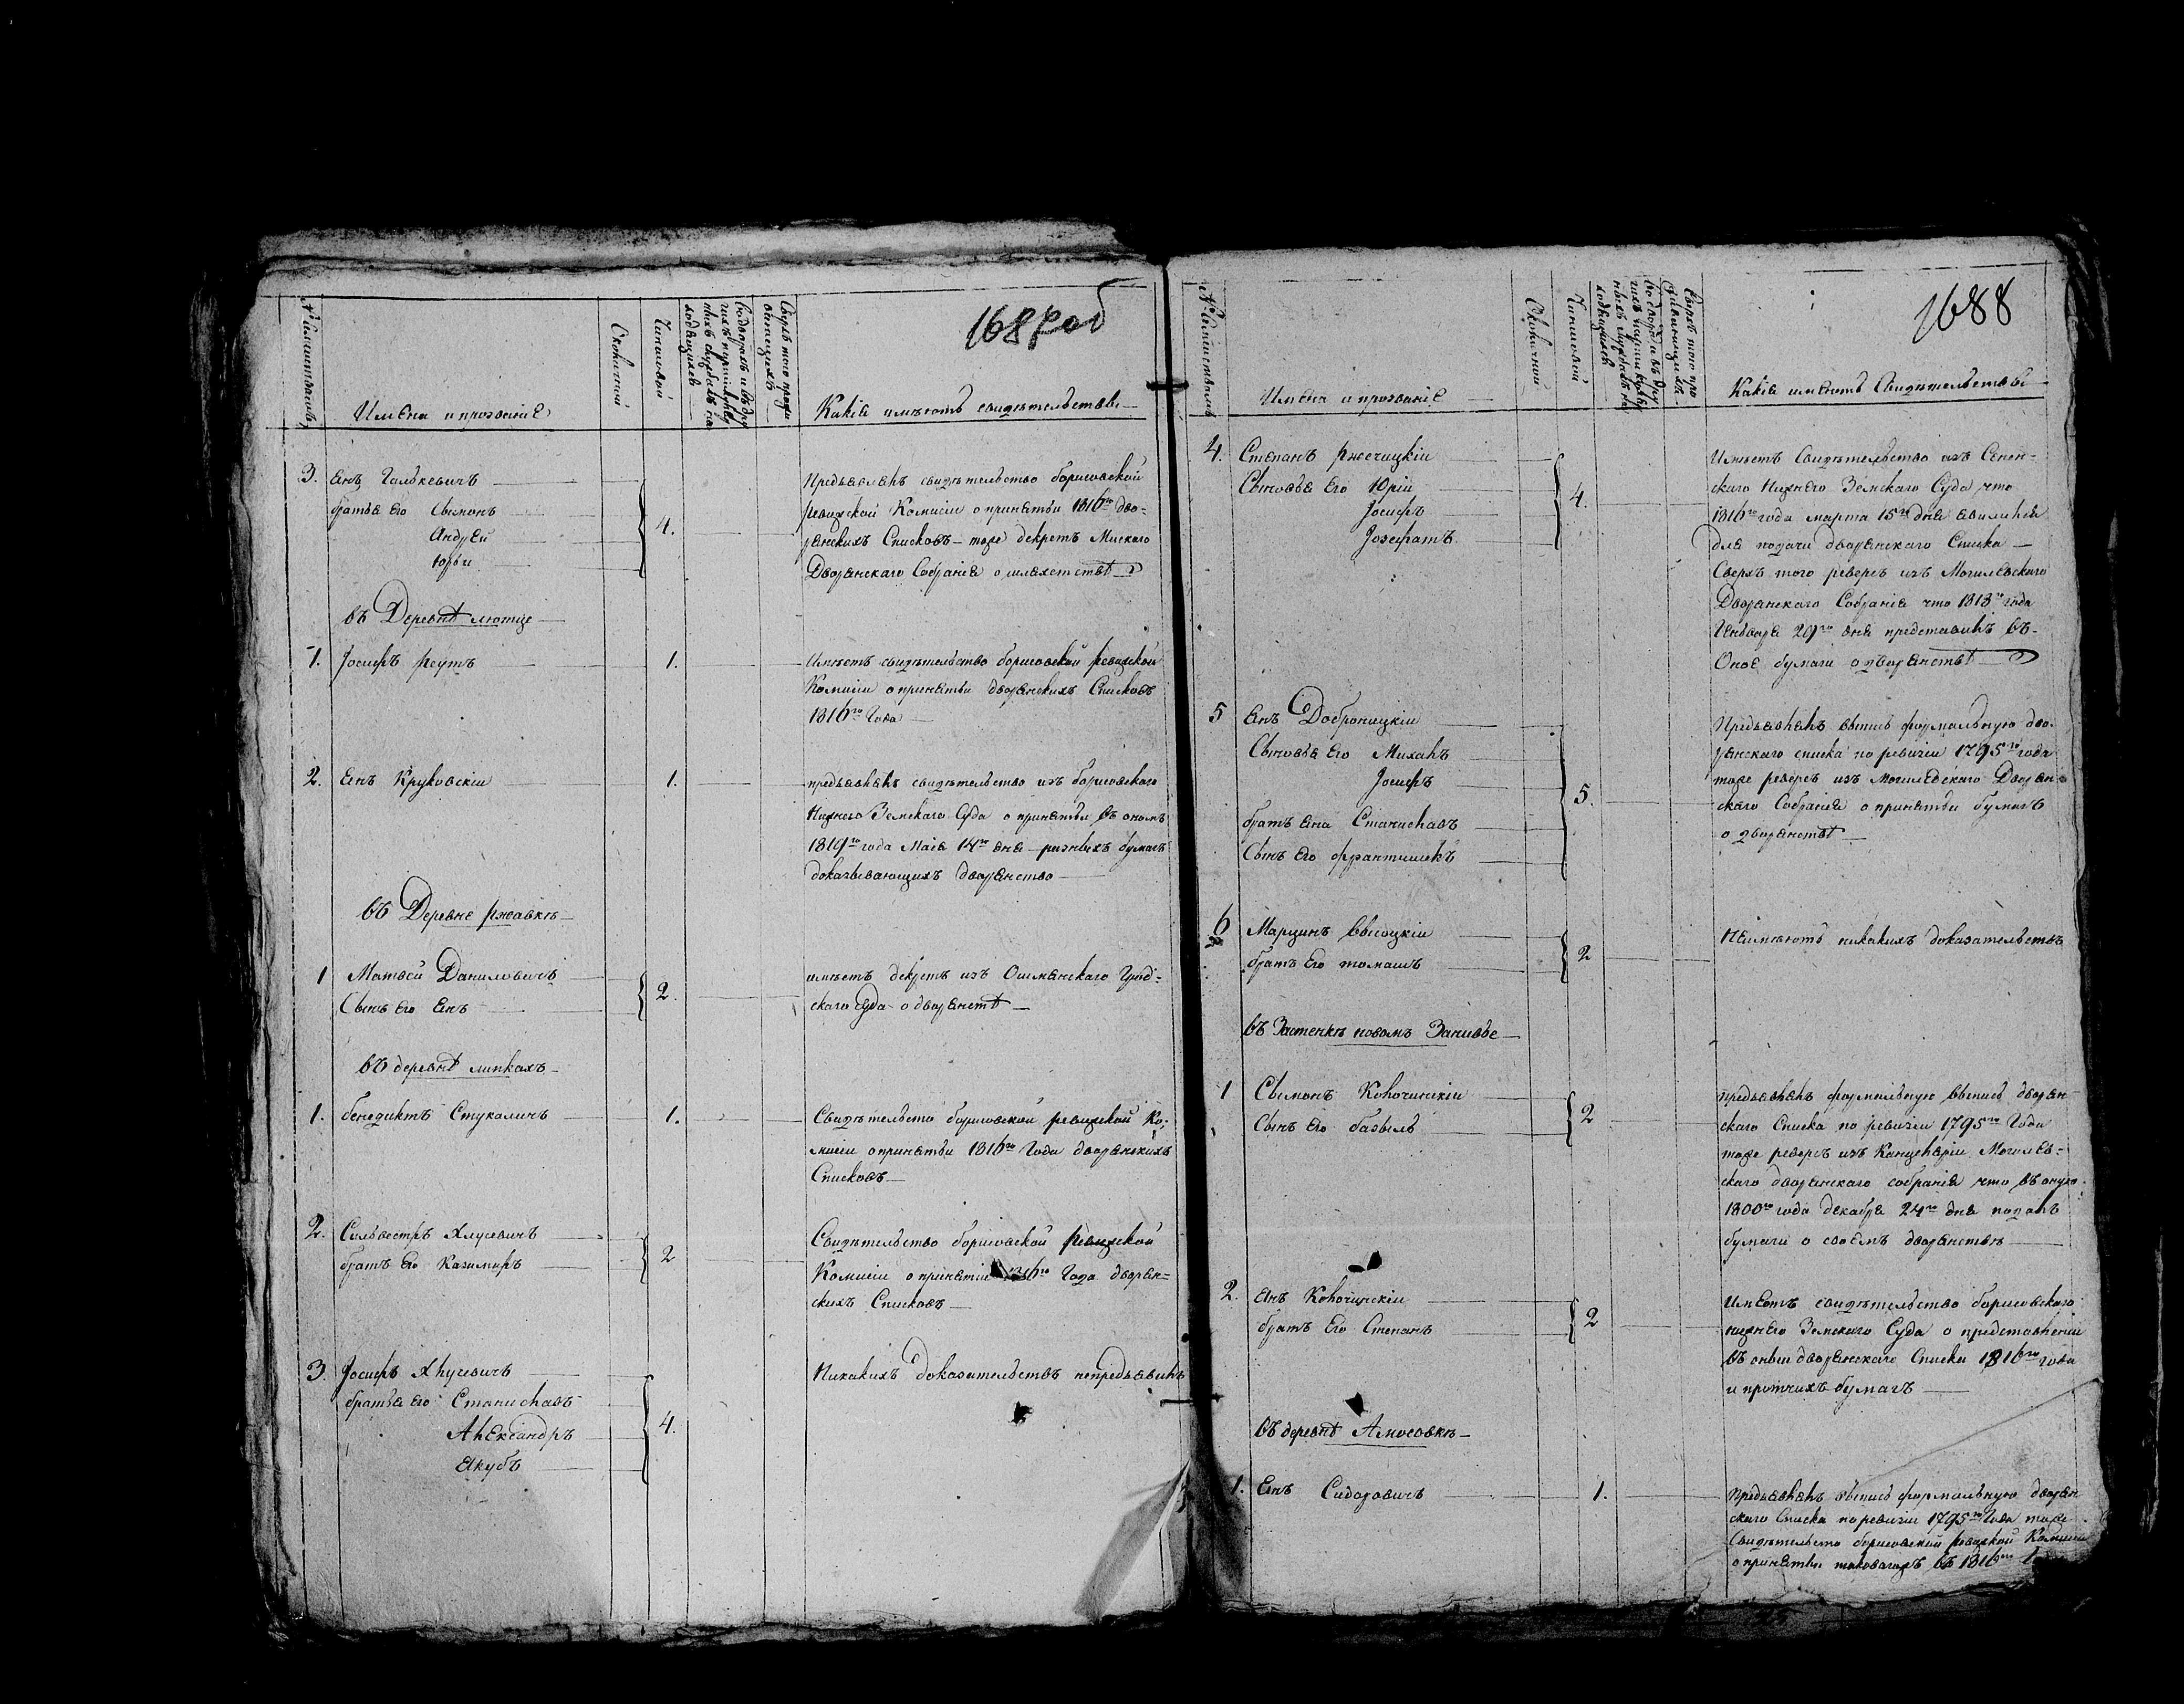 1687 об
№ Семействамъ
Имена и прозваніе
Околичной
Чиншовой
Какіе имѣютъ свидѣтельства
3. Янъ Галькевичъ
братья Его Сымонъ
Андрей
Юрьи
4.
Предъявленъ свидѣтельство борисовской
ревизской Комисіи о принятьи 1816го дво=
рянскихъ Списковъ — тоже декретъ Минскаго
Дворянскаго Собранія о шляхетствѣ
въ Деревнѣ лютце
1. Іосифъ Реутъ
1.
Имѣетъ свидѣтельство борисовской ревизской
Комисіи о принятьи дворянскихъ Списковъ
1816го Года
2. Янъ Круковскіи
1.
предъявленъ свидѣтельство изъ борисовского
Нижнего Земскаго Суда о принятьи въ ономъ
1819го года Маія 14го дня разныхъ бумагъ
доказывающихъ дворянство
въ Деревне Ржавкѣ
1 Матвей Даниловичъ
Сынъ Его Янъ
2.
имѣетъ декретъ изъ Ошмянскаго Грод=
скаго суда о дворянстѣ
въ деревнѣ липкахъ
1. бенедиктъ Стукаличъ
1.
Свидѣтельсто борисовской ревизской Ко=
мисіи о принятьи 1816го Года дворянскихъ
Списковъ
2. Сильвестръ Хлусевичъ
братъ Его Казимиръ
2
Свидѣтельство борисовской Ревизской
Комисіи о принятіи 1816го Года дворян=
скихъ Списковъ
3. Іосифъ Хлусевичъ
братья его Станиславъ
Александръ
Якубъ
4.
Никакихъ Доказательствъ непредъявилъ
1688
№ Семействамъ
Имена и прозваніе
Околичной
Чиншовой
Какіе имѣютъ Свидѣтельства
4. Степанъ Ржечицкіи
Сыновья Его Юріи
Іосифъ
Іозефатъ
4.
Имѣетъ Свидѣтельство изъ Сенен=
скаго Нижнего Земскаго Суда что
1816го года марта 15го дня явилися
для подачи дворянскаго Списка —
Сверхъ того реверсъ изъ Могилевскаго
Дворянскаго Собранія что 1813го года
Генваря 29го дня представилъ въ
Оное бумаги о дворянствѣ
5 Янъ Доброницкіи
Сыновья Его Михалъ
Іосифъ
братъ яна Станиславъ
Сынъ Его франтишекъ
5.
Предъявленъ выпись формальную дво=
рянскаго списка по ревизіи 1795го года
тоже реверсъ изъ Могилевскаго Дворян=
скаго Собранія о принятьи бумагъ
о дворянствѣ
6 Марцинъ Высоцкіи
братъ Его томашъ
2
Неимѣютъ никакихъ доказательствъ
въ Застенкѣ новомъ Заниввье
1 Сымонъ Колочинскіи
Сынъ Его базыль
2
предъявленъ формальную выпись дворян
скаго Списка по ревизіи 1795го Года
тоже реверсъ изъ Канцеляріи Могилев=
скаго дворянскаго собранія что въ оную
1800го года декабря 24го дня подалъ
бумаги о своемъ дворянствѣ
2. Янъ Колочинскіи
братъ Его Степанъ
2
Имѣютъ свидѣтельство борисовскаго
нижнего Земскаго Суда о представленіи
въ оныи дворянскаго Списка 1816го года
и протчихъ бумагъ
въ деревнѣ Амосовкѣ
1. Янъ Сидоровичъ
1.
Предъявленъ выпись формальную дворян
скаго Списка по ревизіи 1795го Года тоже
Свидѣтельсто борисовской ревизкой Комисіи
о принятьи таковагожъ въ 1816го